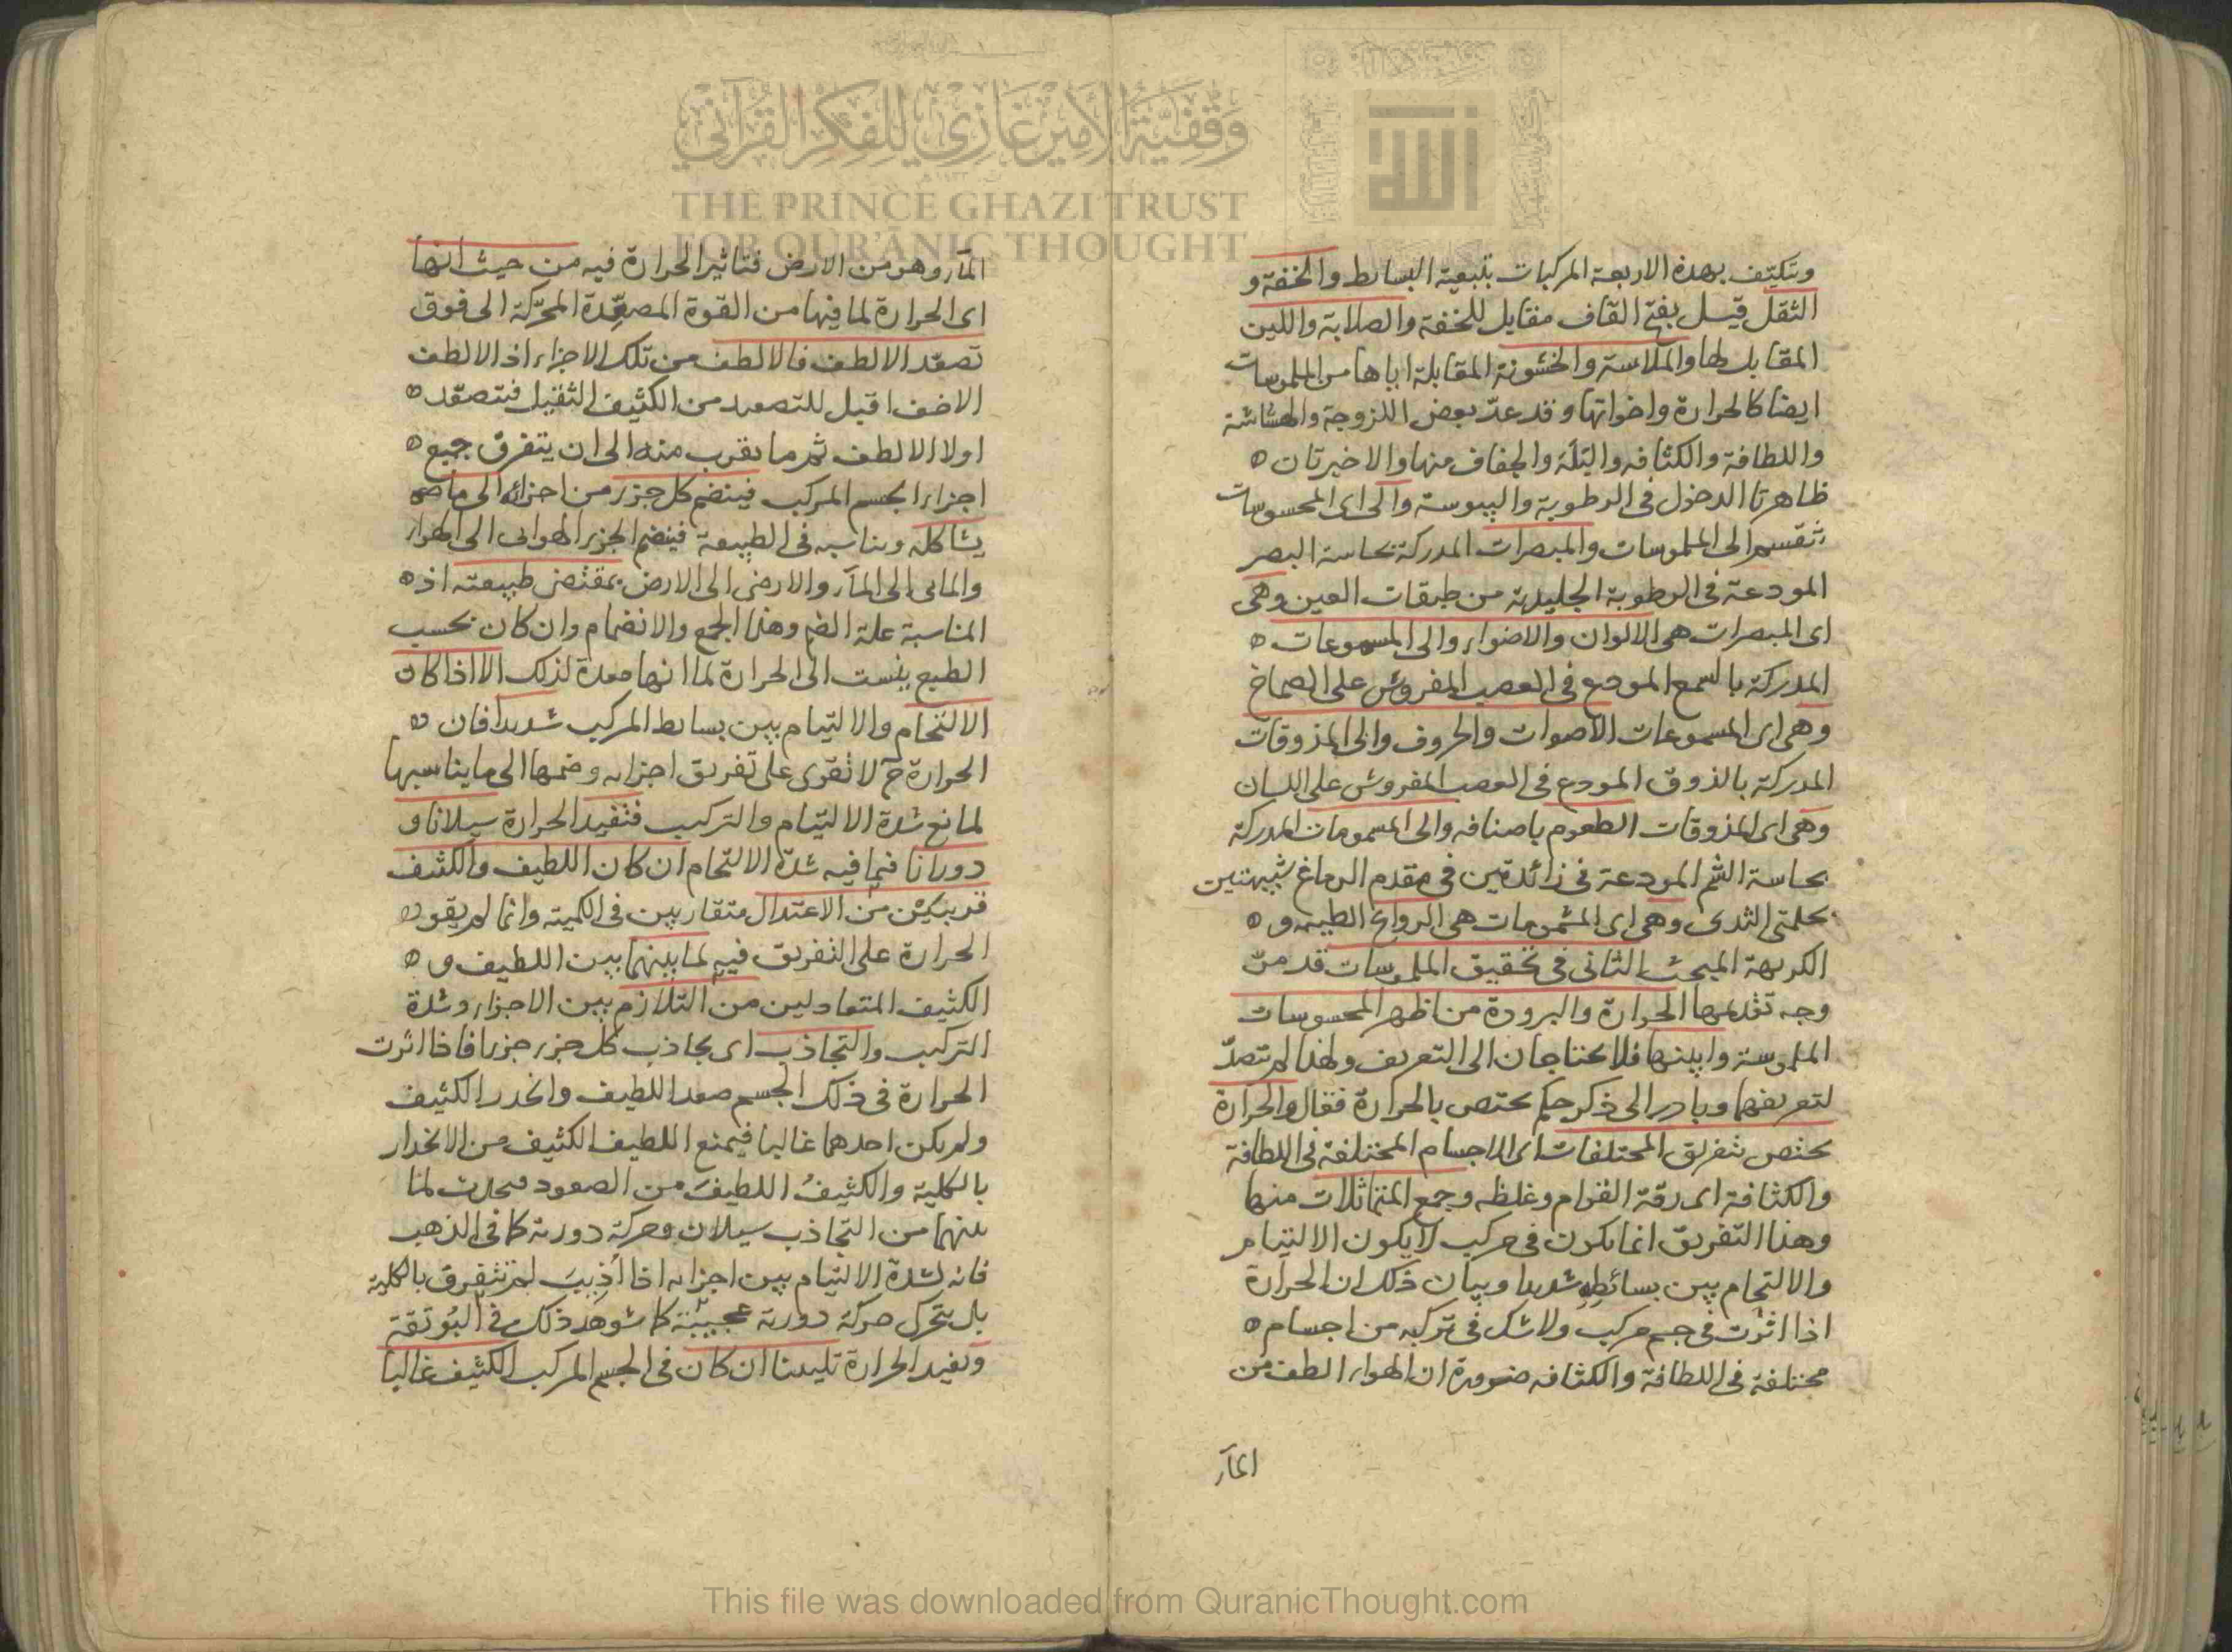 وتتكيّف بهذه الاربعة المركبات بتبعية البسايط والخفة و
الثقل قيل بفتح القاف مقابل للخفة والصلابة واللين
المقابل لها والملاسة والخشونة المقابلة اياها من الملموسات
ايضا كالحرارة واخواتها وقد عدّ بعض اللزوجة والهشاشة
واللطافة والكثافة والبلّة والجفاف منها والاخيرتان
ظاهرتا الدخول فى الرطوبة واليبوسة والى اى المحسوسات
تنقسم الى الملموسات والمبصرات المدركة بحاسة البصر
المودعة فى الرطوبة الجليدية من طبقات العين وهى
اى المبصرات هى الالوان والاضواء والى المسموعات
المدركة بالسمع المودع فى العصب المفروش على الصماخ
وهى اى المسموعات الاصوات والحروف والى المذوقات
المدركة بالذوق المودع فى العصب المفروش على اللسان
وهى اى المذوقات الطعوم باصنافه والى المشمومات المدركة
بحاسة الشم المودعة فى زائدتين فى مقدم الدماغ شبيهتين
بحلمتى الثدى وهى اى المشمومات هى الروايح الطيبة و
الكريهة المبحث الثانى فى تحقيق الملموسات قد مرّ
وجه تقديمها الحرارة والبرودة من اظهر المحسوسات
الملموسة وابينها فلا يحتاجان الى التعريف ولهذا لم يتصدّ
لتعريفهما وبادر الى ذكر حكم يختص بالحرارة فقال والحرارة
يختص بتفريق المختلفات اى الاجسام المختلفة فى اللطافة
والكثافة اى رقة القوام وغلظه وجمع المتماثلات منها
وهذا التفريق انما يكون فى مركب لا يكون الالتيام
والالتحام بين بسائطه شديدا وبيان ذلك ان الحرارة
اذا اثرت فى جسم مركب ولا شك فى تركبه من اجسام
مختلفة فى اللطافة والكثافة ضرورة ان الهواء الطف من
الماء
الماء وهو من الارض فتاثير الحرارة فيه من حيث انها
اى الحرارة لما فيها من القوة المصعّدة المحرّكة الى فوق
تصعّد الالطف فالالطف من تلك الاجزاء اذ الالطف
الاخف اقبل للتصعيد من الكثيف الثقيل فتصعّد
اولا الالطف ثم ما يقرب منه الى ان يتفرق جميع
اجزاء الجسم المركب فينضم كل جزء من اجزائه الى ما
يشاكله ويناسبه فى الطبيعة فينضم الجزء الهوائى الى الهواء
والمائى الى الماء والارضى الى الارض بمقتضى طبيعته اذ
المناسبة علة الضم وهذا الجمع والانضمام وان كان بحسب
الطبع ينسب الى الحرارة لما انها معدة لذلك الا اذا كان
الالتحام والالتيام بين بسايط المركب شديدا فان
الحرارة ح لا تقوى على تفريق اجزائه وضمها الى ما يناسبها
لمانع شدة الالتيام والتركيب فتفيد الحرارة سيلانا و
دورانا فيما فيه شدة الالتحام ان كان اللطيف والكثيف
قريبين من الاعتدال متقاربين فى الكمية وانما لم يقو
الحرارة على التفريق فيه لما بينهما بين اللطيف و
الكثيف المتعادلين من التلازم بين الاجزاء وشدة
التركيب والتجاذب اى يجاذب كل جزء جزءا فاذا اثرت
الحرارة فى ذلك الجسم صعد اللطيف وانحدر الكثيف
ولم يكن احدهما غالبا فيمنع اللطيف الكثيف من الانحدار
بالكلية والكثيفُ اللطيفَ من الصعود فيحدث لما
بينهما من التجاذب سيلان وحركة دورية كما فى الذهب
فانه لشدة الالتيام بين اجزائه اذا اُذيب لم تتفرق بالكلية
بل يتحرك حركة دورية عجيبة كما شوهد ذلك فى البُوتقة
وتفيد الحرارة تليينا ان كان فى الجسم المركب الكثيف غالبا
وقفية الأمير غازي للفكر القرآني
THE PRINCE GHAZI TRUST
FOR QUR'ANIC THOUGHT
This file was downloaded from QuranicThought.com